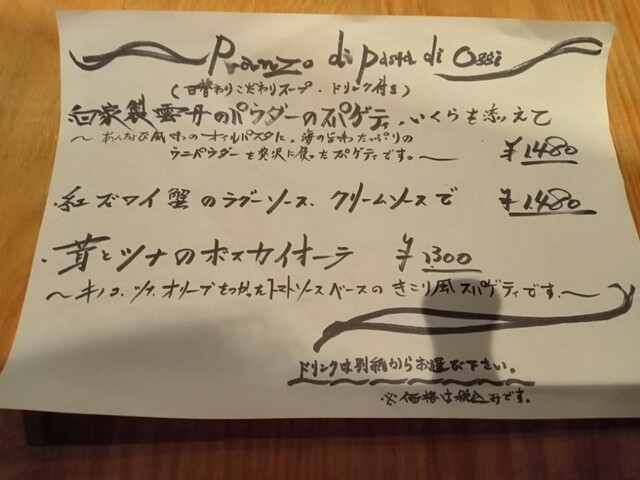 Pranzo di pasta di Oggi
(日替わりこだわりスープ・ドリンク付き)
自家製雲丹のパウダーのスパゲティ、いくらを添えて
～あんちょび風味のオイルパスタに、海の旨味たっぷりの
ウニパウダーを贅沢に使ったスパゲティです。～ ¥1480
・紅ズワイ蟹のラグーソース、クリームソースで ¥1480
・茸とツナのボスカイオーラ ¥1300
～キノコ、ツナ、オリーブをつかったトマトソースベースのきこり風スパゲティです。～
ドリンクは別紙からお選び下さい。
※価格は税込みです。